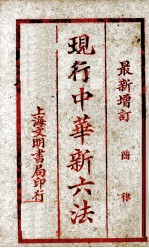 最新增訂 商律
現行中華新六法
上海文明書局印行